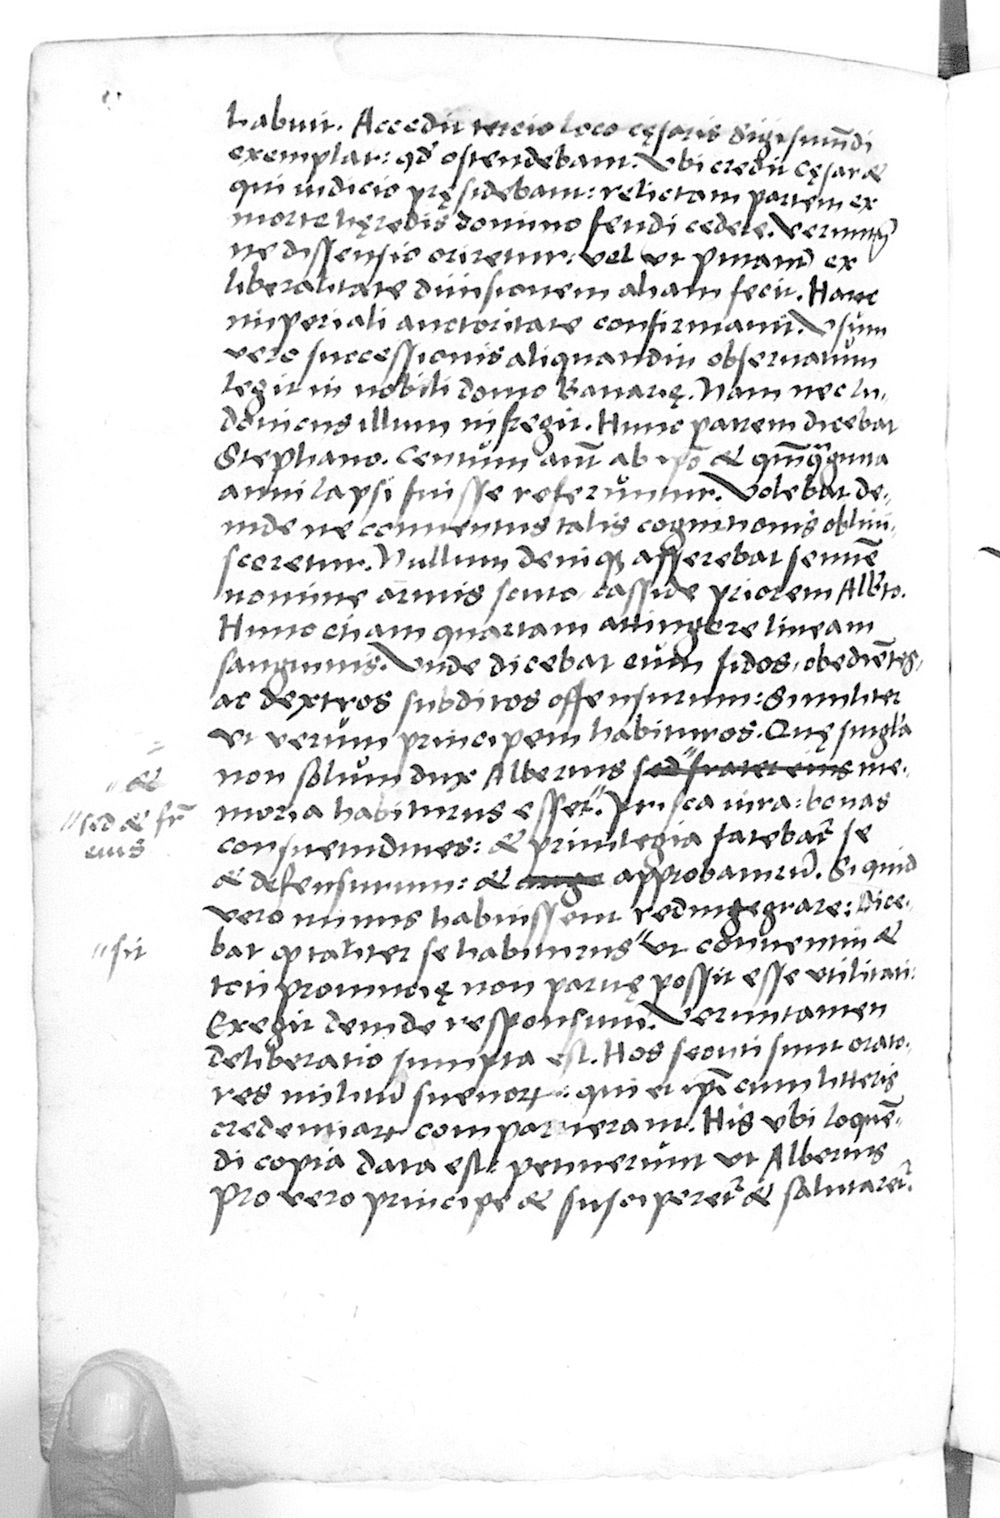 habuit. Accedit tercio loco cęsaris Sigismūdi
exemplar: qd' ostendebant. Vbi credit Cęsar &
qui iudicio pręsidebant: relictam partem ex
morte hęredis domino feudi cedere. Verumtn̄
ne dissensio oriretur: vel vt putant ex
liberalitate diuisionem aliam fecit. Hanc
imperiali auctoritate confirmauit. Vsum
vero successionis aliquandiu obseruatum
legit in nobili domo Bauarię. Nam nec lu-
douicus illum infregit. Hunc patrem dicebat
Stephano. Centum aut ab ipo & quinq̄ginta
anni lapsi fuisse referuntur. Volebat de-
inde ne conuentus talis cognitionis obliui-
sceretur. Nullum deniq; afferebat
nomine armis scuto, casside priorem Alb'to.
Hunc etiam quartam attingere lineam
sanguinis. Vnde dicebat eum fidos, obediētes,
ac dextros subditos offensurum: Similiter
vt verum principem habituros. Quę singl'a
non solum dux Albertus sed "frater eius me-
moria habiturus esset". Prisca iura: bonas
consuetudines: & priuilegia fatebat' se
& defensurum: & approbaturū. Si quid
vero minus habuissent redintegrare: Dice-
bat q taliter se habiturus "vt conuentui &
toti prouincię non paruę possit esse vtilitati:
Exegit deinde responsum. Veruntamen
deliberatio sumpta est. Hos secuti sunt orato-
res militū suenort: qui et ipi cum litteris
credentiart comparuerant. His vbi loquē-
di copia data est: petuerunt vt Albertus
pro vero principe & susciperet' & salutaret'.
"&
"sed & fr̄
eius
"sit